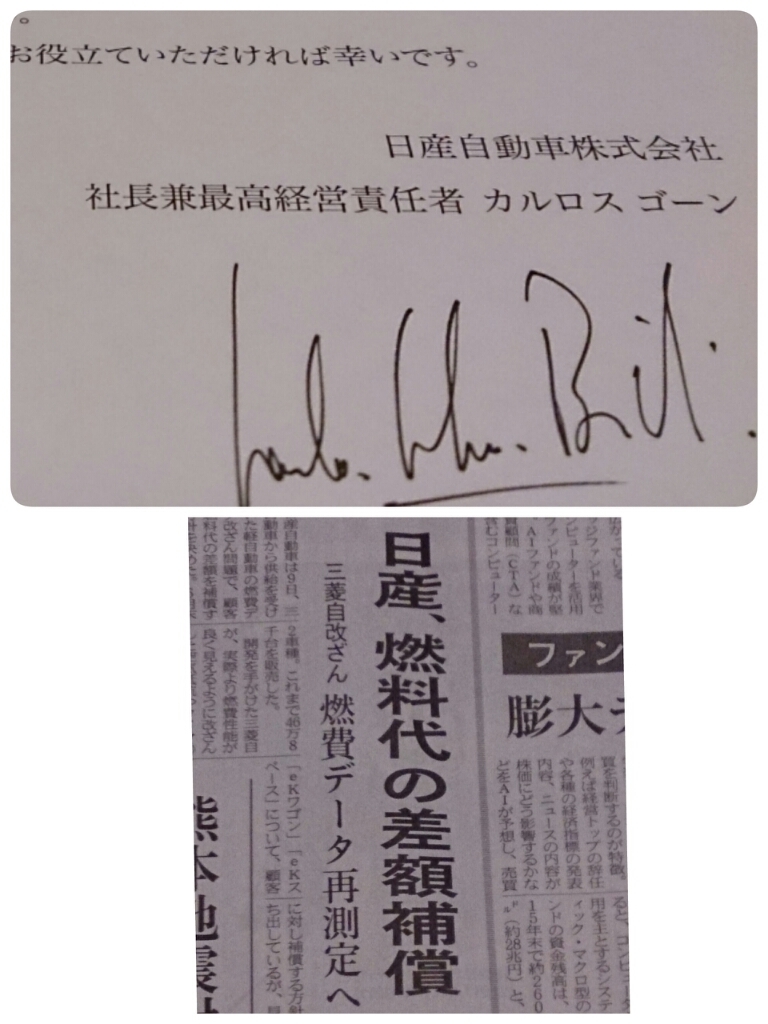 。
お役立ていただければ幸いです。
日産自動車株式会社
社長兼最高経営責任者 カルロス ゴーン
日産、燃料代の差額補償
三菱自改ざん 燃費データ再測定へ
産自動車は9日、三
動車から供給を受け
た軽自動車の燃費デ
改ざん問題で、顧客
料代の差額を補償す
2車種。これまで46万8
千台を販売した。
開発を手がけた三菱自
が、実際より燃費性能が
良く見えるように改ざん
「eKワゴン」「eKス
ペース」について、顧客
に対し補償する方針
ち出しているが、
熊本地震
ファンド業界で
ンピューターを活用
ファンドの成績が堅
AIファンドや商
顧問(CTA)な
含むコンピューター
ファン
膨大デ
質を判断するのが特徴。
例えば経営トップの辞任
や各種の経済指標の発表
内容、ニュースの内容が
株価にどう影響するかな
どをAIが予想し、売買
ると、コンピュ
用を主とするシステ
ィック・マクロ型の
ンドの資金残高は、
15年末で約260
ドル(約28兆円)と、